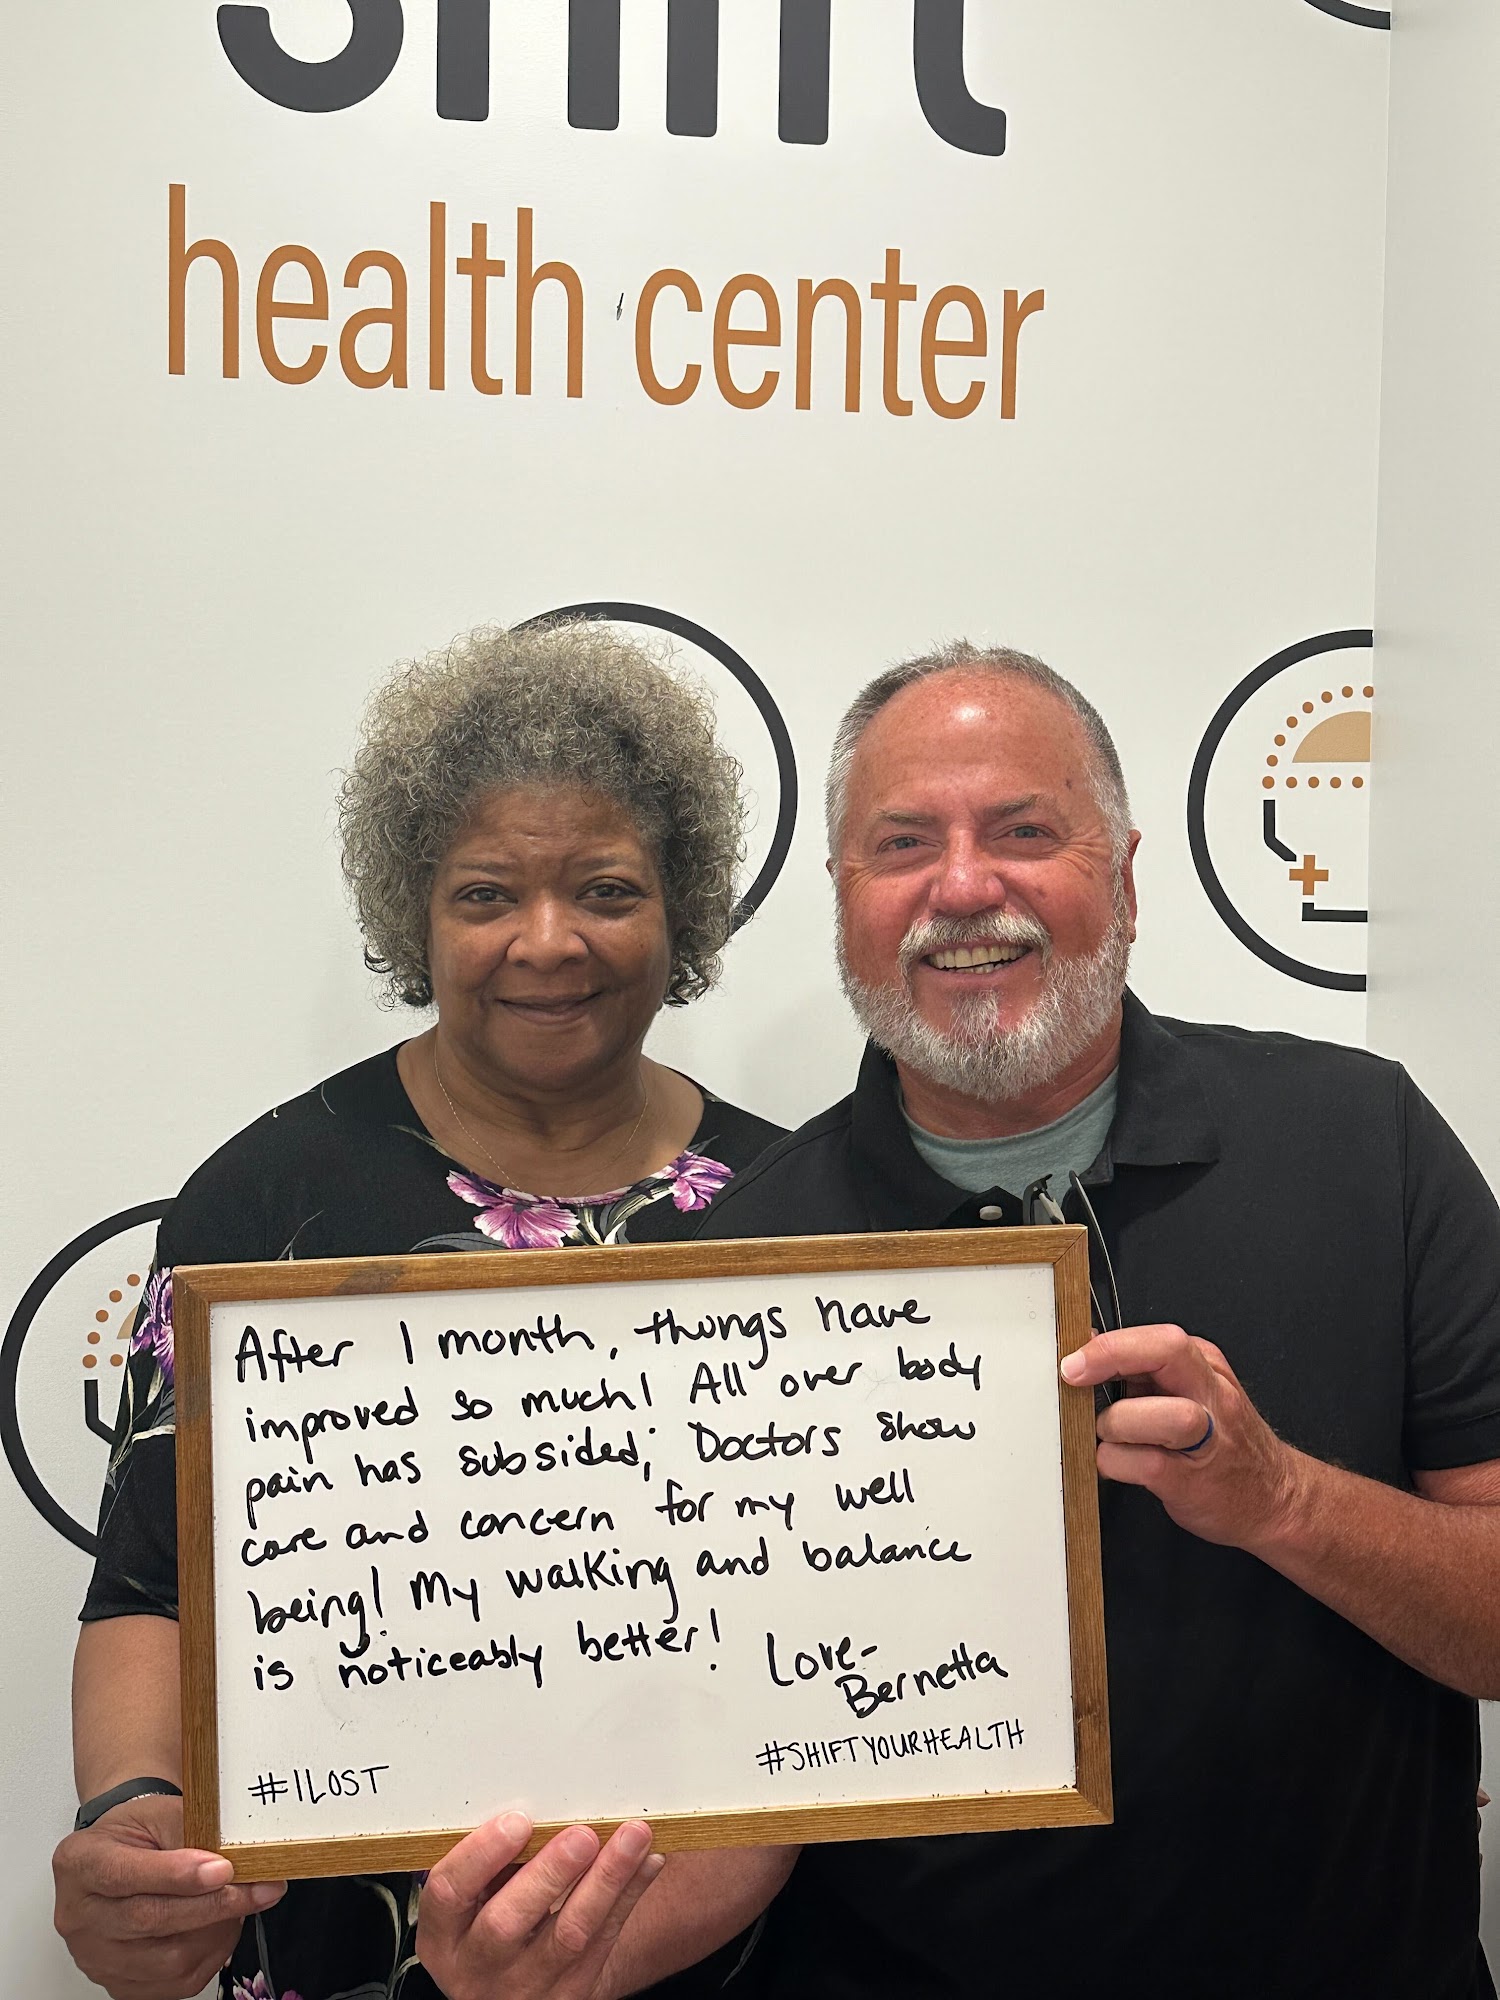 shift
health center
After 1 month, thungs have
improved so much! All over body
pain has subsided; Doctors show
care and concern for my well
being! My walking and balance
is noticeably better!
Love-
Bernetta
#SHIFTYOURHEALTH
#ILOST